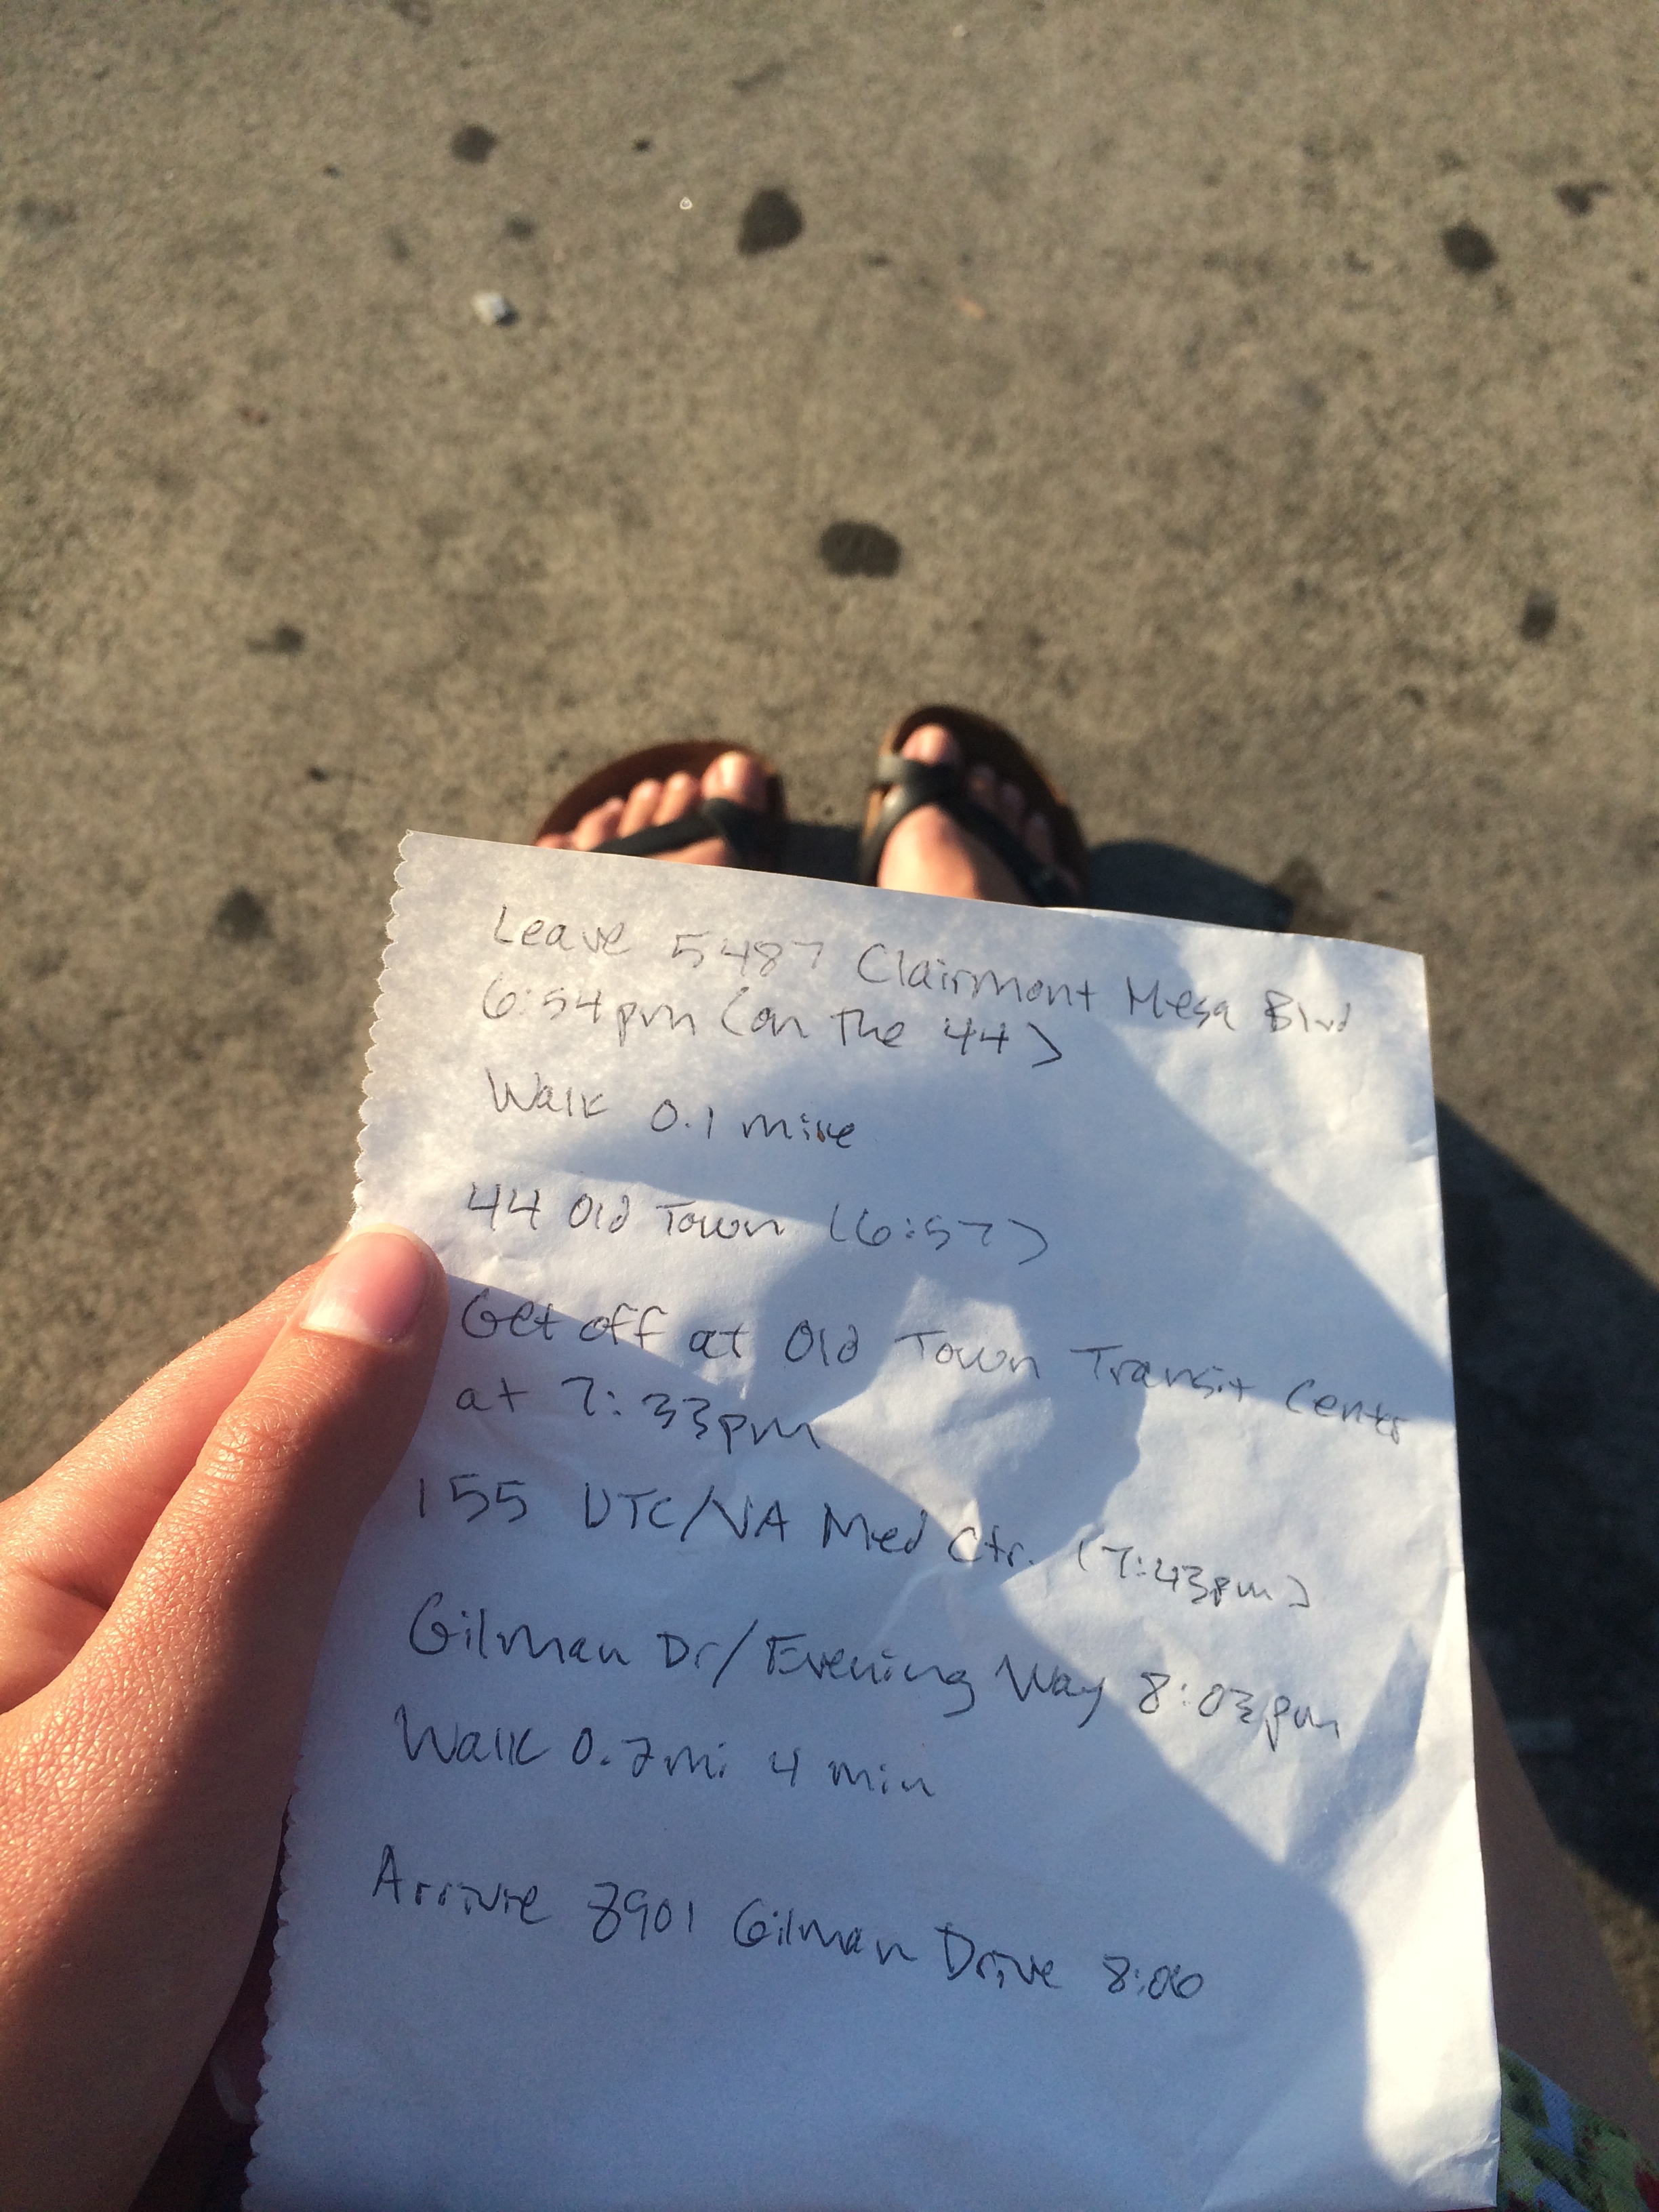 Leave 5487 Clairmont Mesa Blvd
6:54pm (on the 44)
Walk 0.1 mile
44 Old Town (6:57)
Get off at Old Town Transit Center
at 7:33pm
155 UTC/VA Med Ctr. (7:43pm)
Gilman Dr/Evening Way 8:03pm
Walk 0.2mi 4 min
Arrive 8901 Gilman Drive 8:06